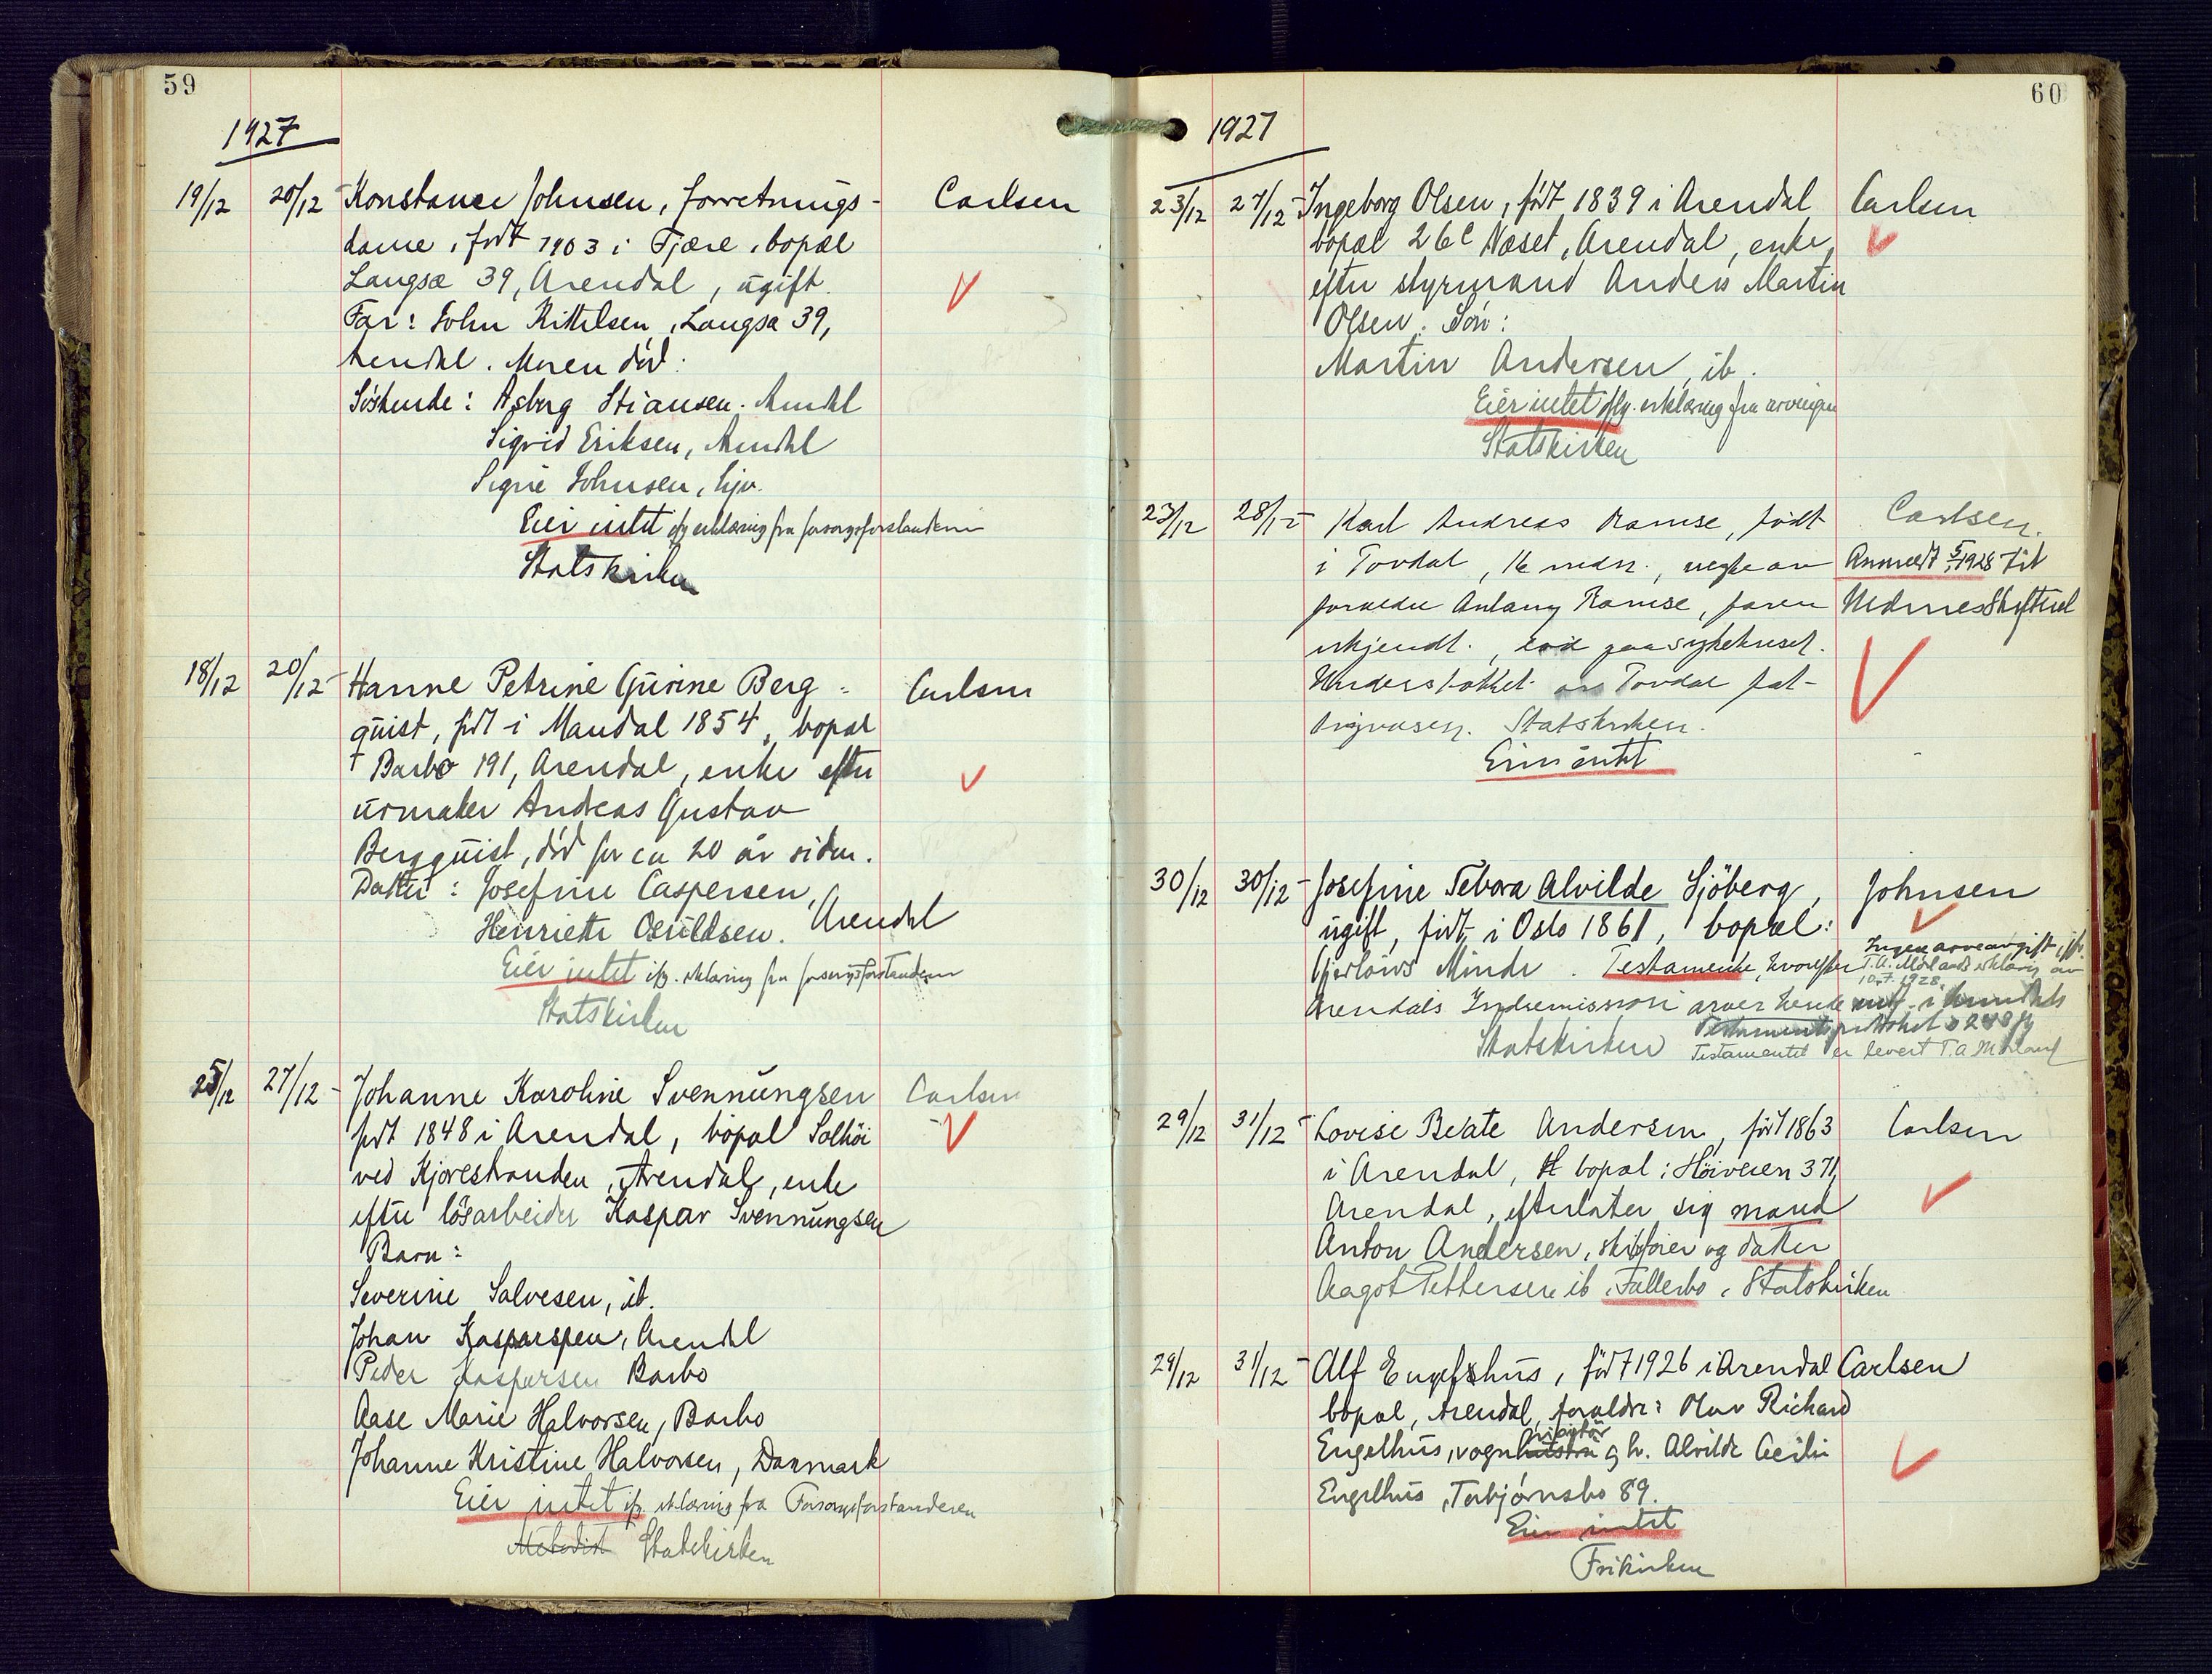 59
1927
19/12 20/12 - Konstance Johnsen, forretnings- Carlsen
dame, født 1903 i Fjære, bopæl
Langsæ 39, Arendal, ugift.
Far: John Kittelsen, Langsæ 39,
Arendal. Moren død.
Søskende: Asborg Stiansen. Arendal
Sigrid Eriksen, Arendal
Signe Johnsen, hjv.
Eier intet ifg erklæring fra forsorgsforstanderen
Statskirken
18/12 20/12 - Hanne Petrine Gurine Berg= Carlsen
quist, født i Mandal 1854, bopæl
Barbo 191, Arendal, enke efter
urmaker Andreas Gustav
Bergquist, død for ca 20 år siden.
Datter: Josefine Caspersen,
Henriette Osuldsen. Arendal
Eier intet ifg. erklæring fra forsorgsforstanderen
Statskirken
25/12 27/12 - Johanne Karoline Svennungsen Carlsen
født 1848 i Arendal, bopæl Solhöi
ved Kjorestranden, Arendal, enke
efter løsarbeider Kaspar Svennungsen
Barn:
Severine Salvesen, ib.
Johan Kasparsen, Arendal
Peder Kaspersen Barbo
Aase Marie Halvorsen, Barbo
Johanne Kristine Halvorsen, Danmark
Eier intet ifg. erklæring fra Forsorgsforstanderen
Metodist Statskirken
60
1927
23/12 27/12 - Ingeborg Olsen, født 1839 i Arendal Carlsen
bopæl 26c Næset, Arendal, enke,
efter styrmand Anders Martin
Olsen. Søn:
Martin Andersen, ib.
Eier intet ifg. erklæring fra arvingen
Statskirken
23/12 28/12 - Karl Andreas Ramse, født Carlsen.
i Tovdal, 16 mdr., uegte av Anmeldt 5/1 1928 til
foreldre Ramse, faren Nedenes Skifteret
erkjendt., død paa sykehuset.
Understøttet av Tovdal fat-
tigvæsen. Statskirken.
Eier intet
30/12 30/12 - Josefine Tebora Alvilde Sjöberg, Johnsen
ugift, født i Oslo 1861, bopæl:
Minde. Testamente, hvorefter Ingen arveavgift, ifr.
T.A. Mørlands erklæring av
1928.
Arendals Indremission arver hende i Arendals
Testamentsprotokol
Statskirken Testamentet er levert T.A Mørland
29/12 31/12 - Lovise Beate Andersen, født 1863 Carlsen
i Arendal, bopæl: Höiveien 371,
Arendal, efterlater sig mand
Anton Andersen, skibsfører og datter
Aagot Pettersen ib, Fællesbo, Statskirken
29/12 31/12 - Alf Engelshus, født 1926 i Arendal Carlsen
bopæl, Arendal, foreldre: Olav Richard
visitör
Engelhus, vogn og h. Alvilde Cecilie
Engelhus, Torbjørnsbo 89.
Eier intet
Frikirken